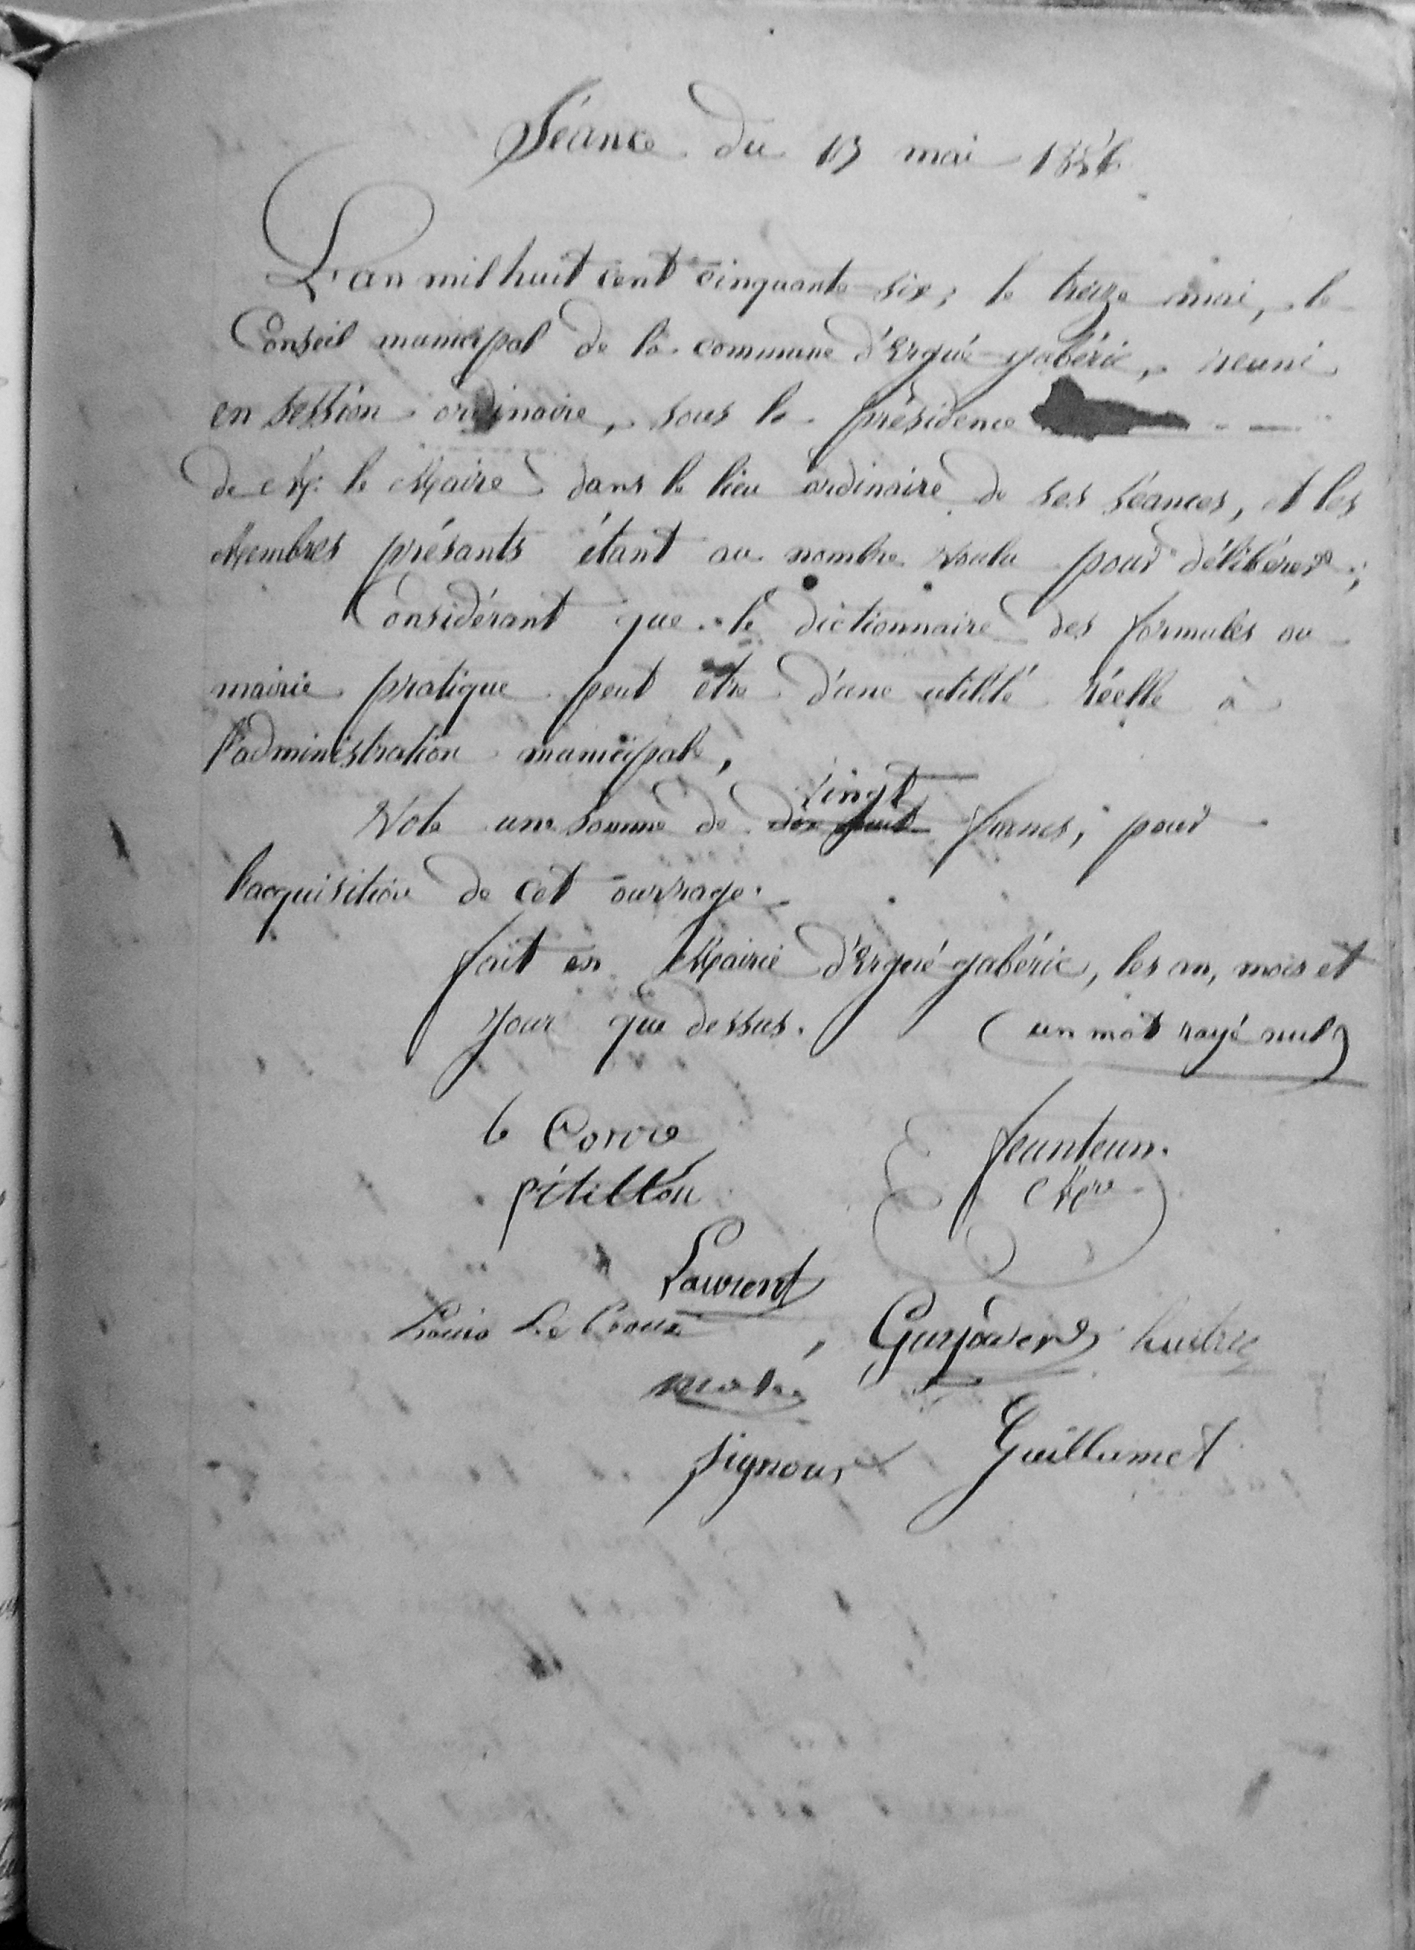 Séance du 13 mai 1856
L'an mil huit cent cinquante six, le treize mai, le
Conseil municipal de la commune d'Ergué-gabéric, réuni
en session ordinaire, sous la présidence
de M. le Maire dans le lieu ordinaire de ses séances, et les
Membres présants étant au nombre voulu pour délibérer;
Considérant que le dictionnaire des formules ou
mairie pratique peut être d'une utilité réelle à
l'administration municipale,
Vote une somme de dix huit vingt francs, pour
l'acquisition de cet ouvrage.
fait en Mairie d'Ergué-gabéric, les an, mois et
jour que dessus. (un mot rayé nul)
le Corre feunteun.
pétillon Mre
Laurent
Louis Le Croux, Gurjaver
Signour Guillumet